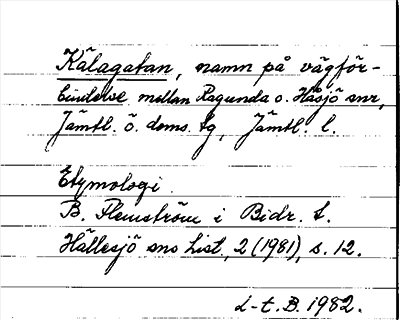 Kälagatan, namn på vägför-
bindelse mellan Ragunda o. Håsjö snr,
Jämtl. ö. doms. tg, Jämtl. l.
Etymologi.
B. Flemström i Bidr. t.
Hällesjö sns hist., 2 (1981), s. 12.
L-t. B. 1982.